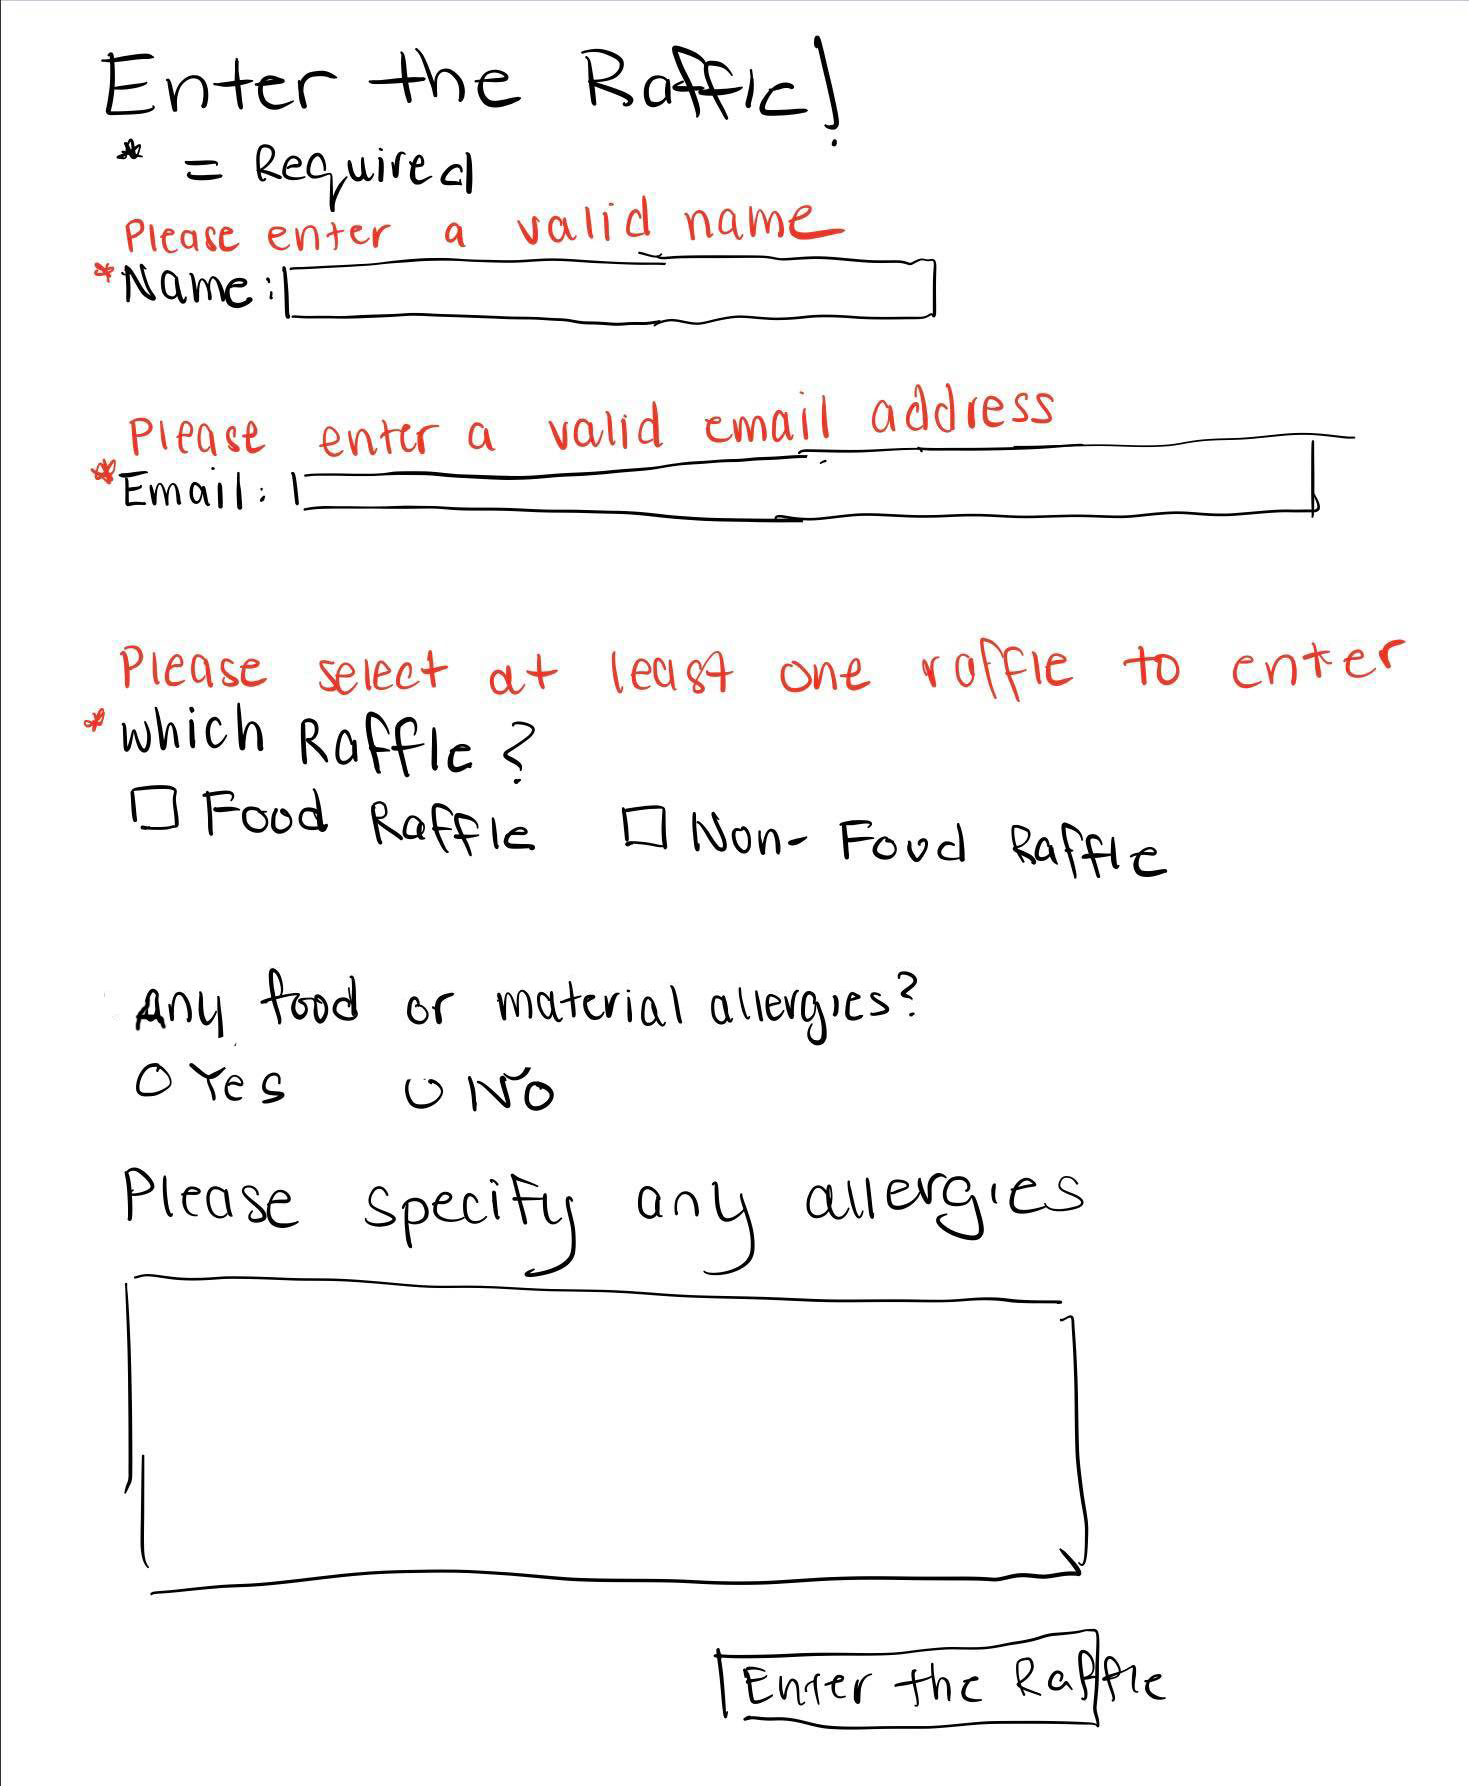 Enter the Raffle!
* = Required
Please enter a valid name
*Name:
Please enter a valid email address
*Email:
Please select at least one raffle to enter
*which Raffle?
Food Raffle Non-Food Raffle
Any food or material allergies?
Yes No
Please specify any allergies
Enter the Raffle